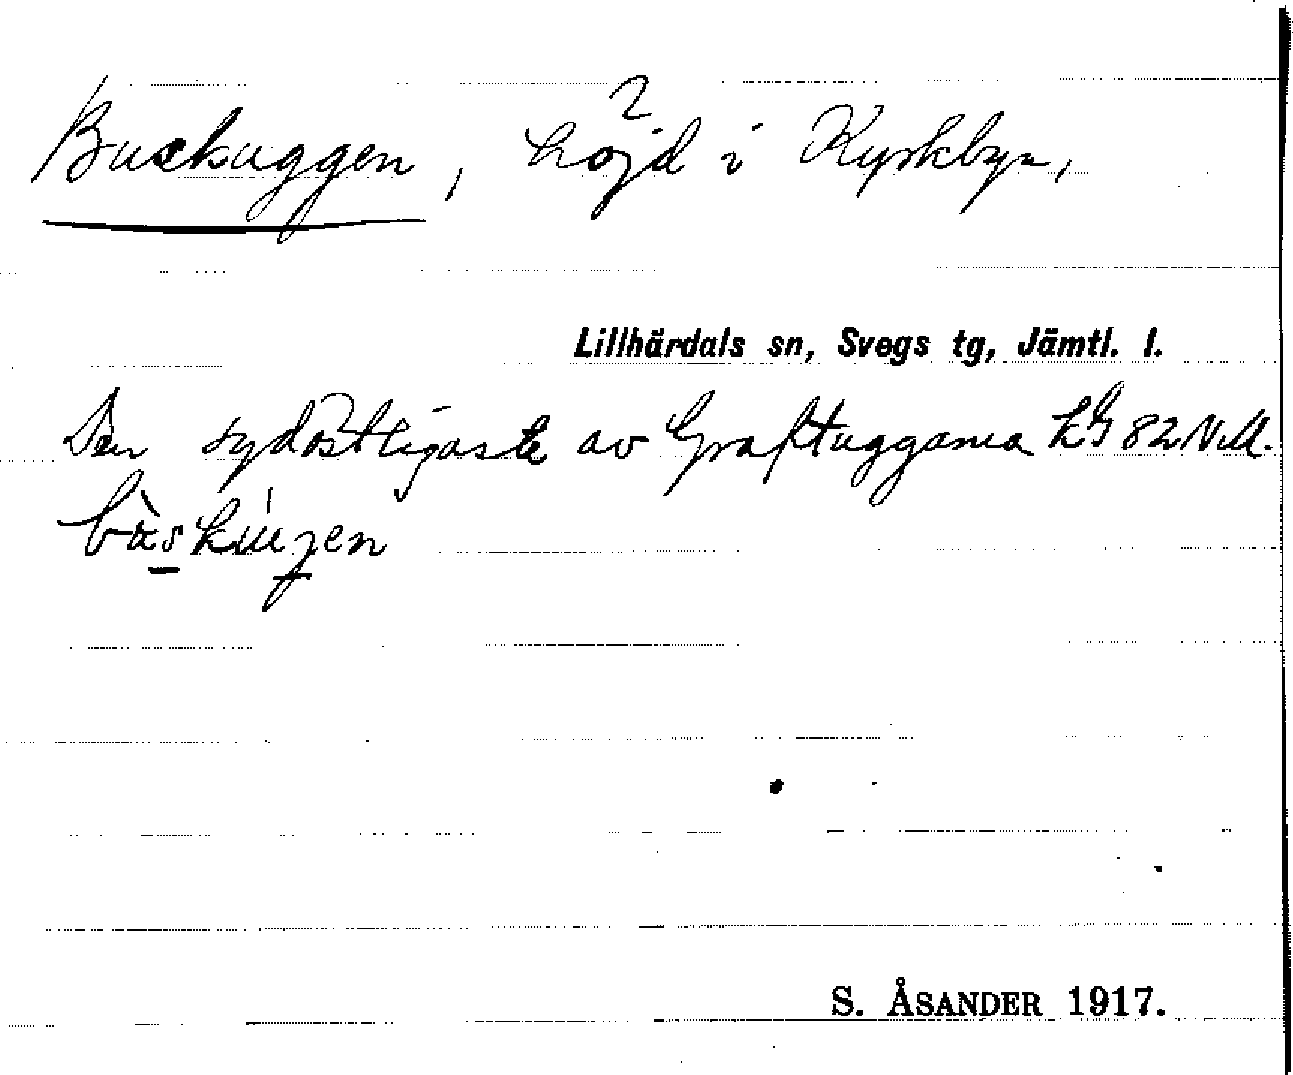 Buskuggen, höjd i Kyrkbyn,
Lillhärdals sn, Svegs tg, Jämtl. l.
Den sydöstligaste av Graftuggarna LG 82 N.M.
S. ÅSANDER 1917.